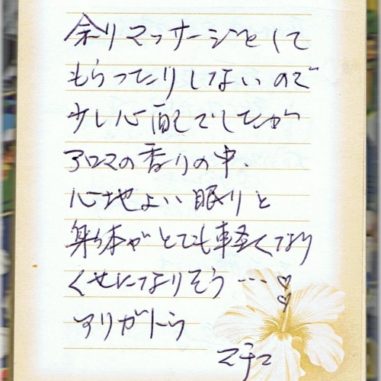 余りマッサージとして
もらったりしないので
少し心配でしたが
アロマの香りの中、
心地よい眠りと
身体がとても軽くなり
くせになりそう…♡
アリガトウ
マチコ